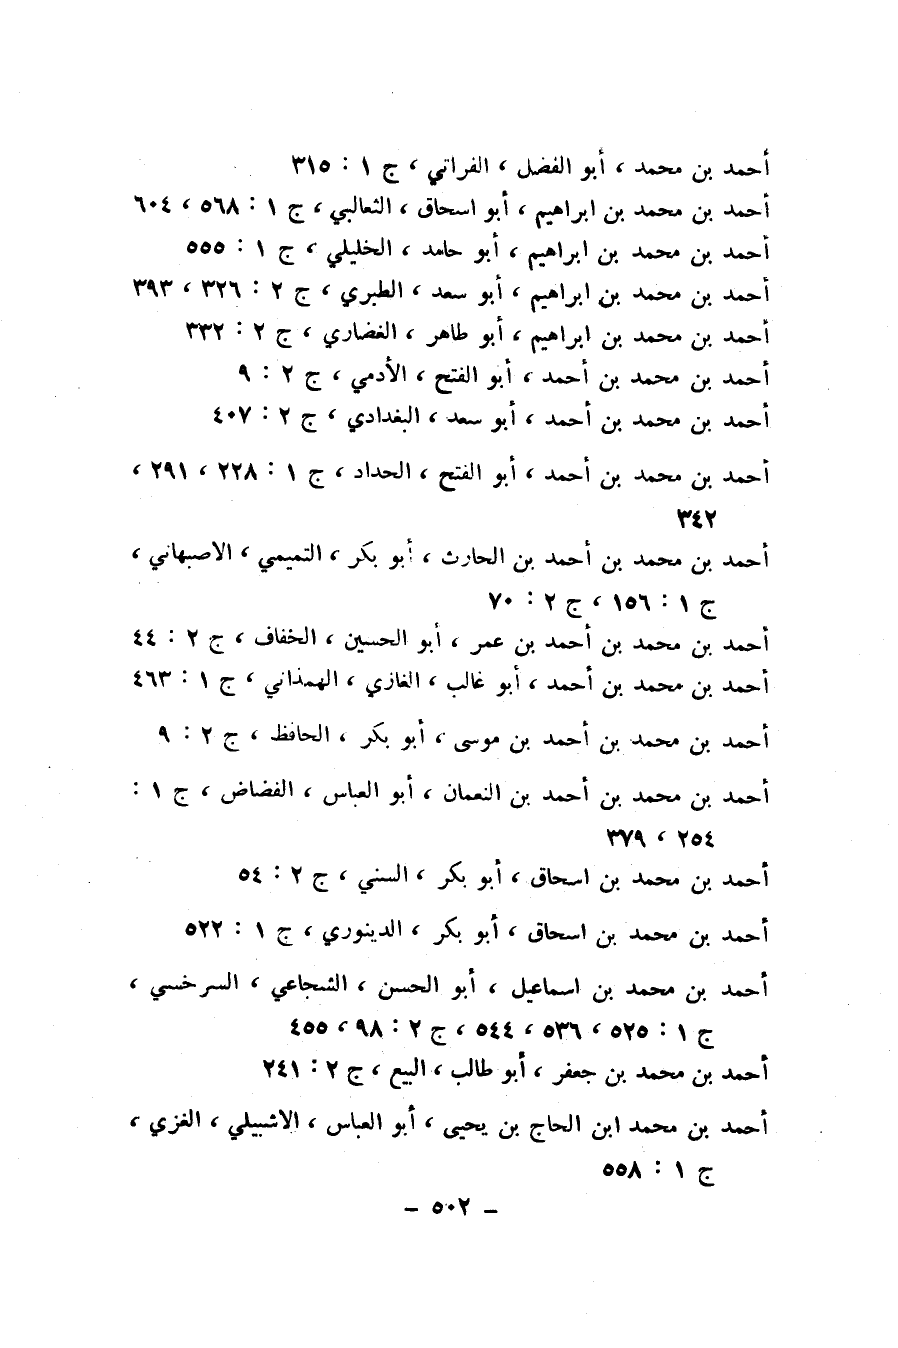 أحمد بن محمد ، أبو الفضل ، الفراتي ، ج ١ : ٣١٥
أحمد بن محمد بن ابراهيم ، أبو اسحاق ، الثعالبي ، ج ١ : ٥٦٨ ، ٦٠٤
أحمد بن محمد بن ابراهيم ، أبو حامد ، الخليلي ، ج ١ : ٥٥٥
أحمد بن محمد بن ابراهيم ، أبو سعد ، الطبري ، ج ٢ : ٣٢٦ ، ٣٩٣
أحمد بن محمد بن ابراهيم ، أبو طاهر ، الغضاري ، ج ٢ : ٣٣٢
أحمد بن محمد بن أحمد ، أبو الفتح ، الأدمي ، ج ٢ : ٩
أحمد بن محمد بن أحمد ، أبو سعد ، البغدادي ، ج ٢ : ٤٠٧
أحمد بن محمد بن أحمد ، أبو الفتح ، الحداد ، ج ١ : ٢٢٨ ، ٢٩١ ،
٣٤٢
أحمد بن محمد بن أحمد بن الحارث ، أبو بكر ، التميمي ، الاصبهاني ،
ج ١ : ١٥٦ ، ج ٢ : ٧٠
أحمد بن محمد بن أحمد بن عمر ، أبو الحسين ، الخفاف ، ج ٢ : ٤٤
أحمد بن محمد بن أحمد ، أبو غالب ، الغازي ، الهمذاني ، ج ١ : ٤٦٣
أحمد بن محمد بن أحمد بن موسى ، أبو بكر ، الحافظ ، ج ٢ : ٩
أحمد بن محمد بن أحمد بن النعمان ، أبو العباس ، الفضاض ، ج ١ :
٢٥٤ ، ٣٧٩
أحمد بن محمد بن اسحاق ، أبو بكر ، السني ، ج ٢ : ٥٤
أحمد بن محمد بن اسحاق ، أبو بكر ، الدينوري ، ج ١ : ٥٢٢
أحمد بن محمد بن اسماعيل ، أبو الحسن ، الشجاعي ، السرخسي ،
ج ١ : ٥٢٥ ، ٥٣٦ ، ٥٤٤ ، ج ٢ : ٩٨ ، ٤٥٥
أحمد بن محمد بن جعفر ، أبو طالب ، البيع ، ج ٢ : ٢٤١
أحمد بن محمد ابن الحاج بن يحيى ، أبو العباس ، الاشبيلي ، الغزي ،
ج ١ : ٥٥٨
– ٥٠٢ –